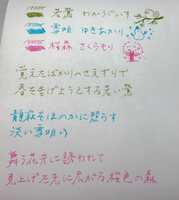 若鶯 わかうぐいす
雪明 ゆきあかり
桜森 さくらもり
覚えたばかりのさえずりで
春をつげようとする若い鶯
静寂をほのかに照らす
淡い雪明り
舞う花弁に誘われて
見上げた先に広がる桜色の森